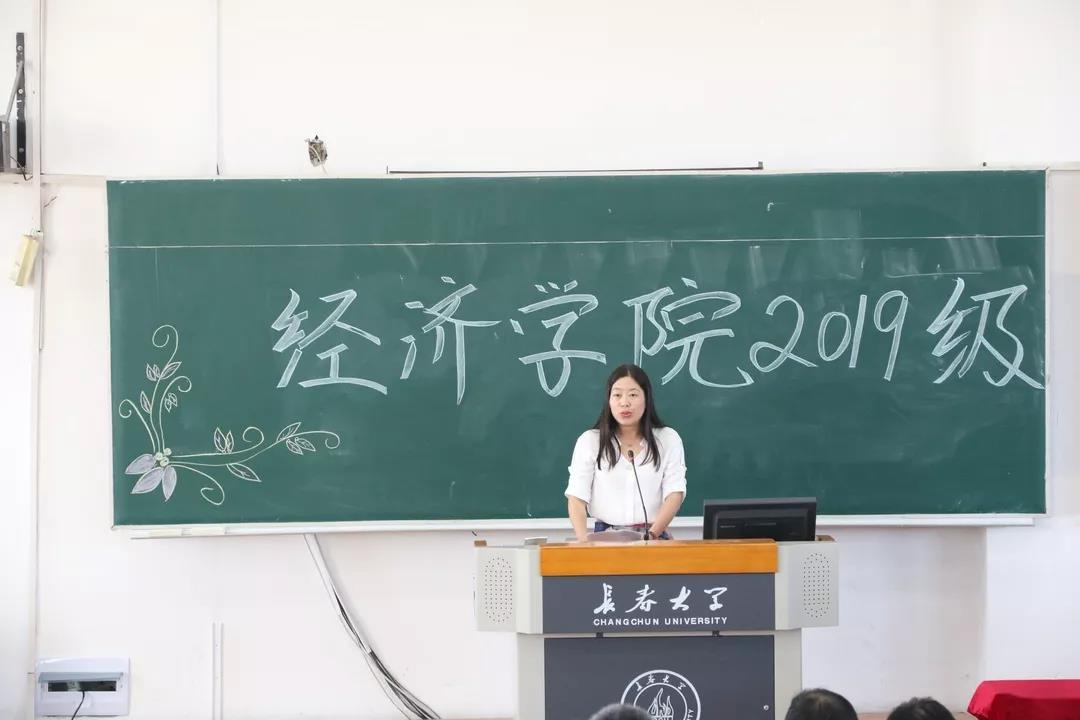 经济学院2019级
長春大学
CHANGCHUN UNIVERSITY
長春大学